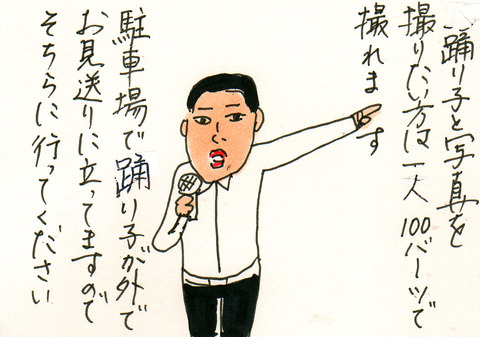 踊り子と写真を
撮りたい方は一人100バーツで
撮れます
駐車場で踊り子が外で
お見送りに立ってますので
そちらに行ってください